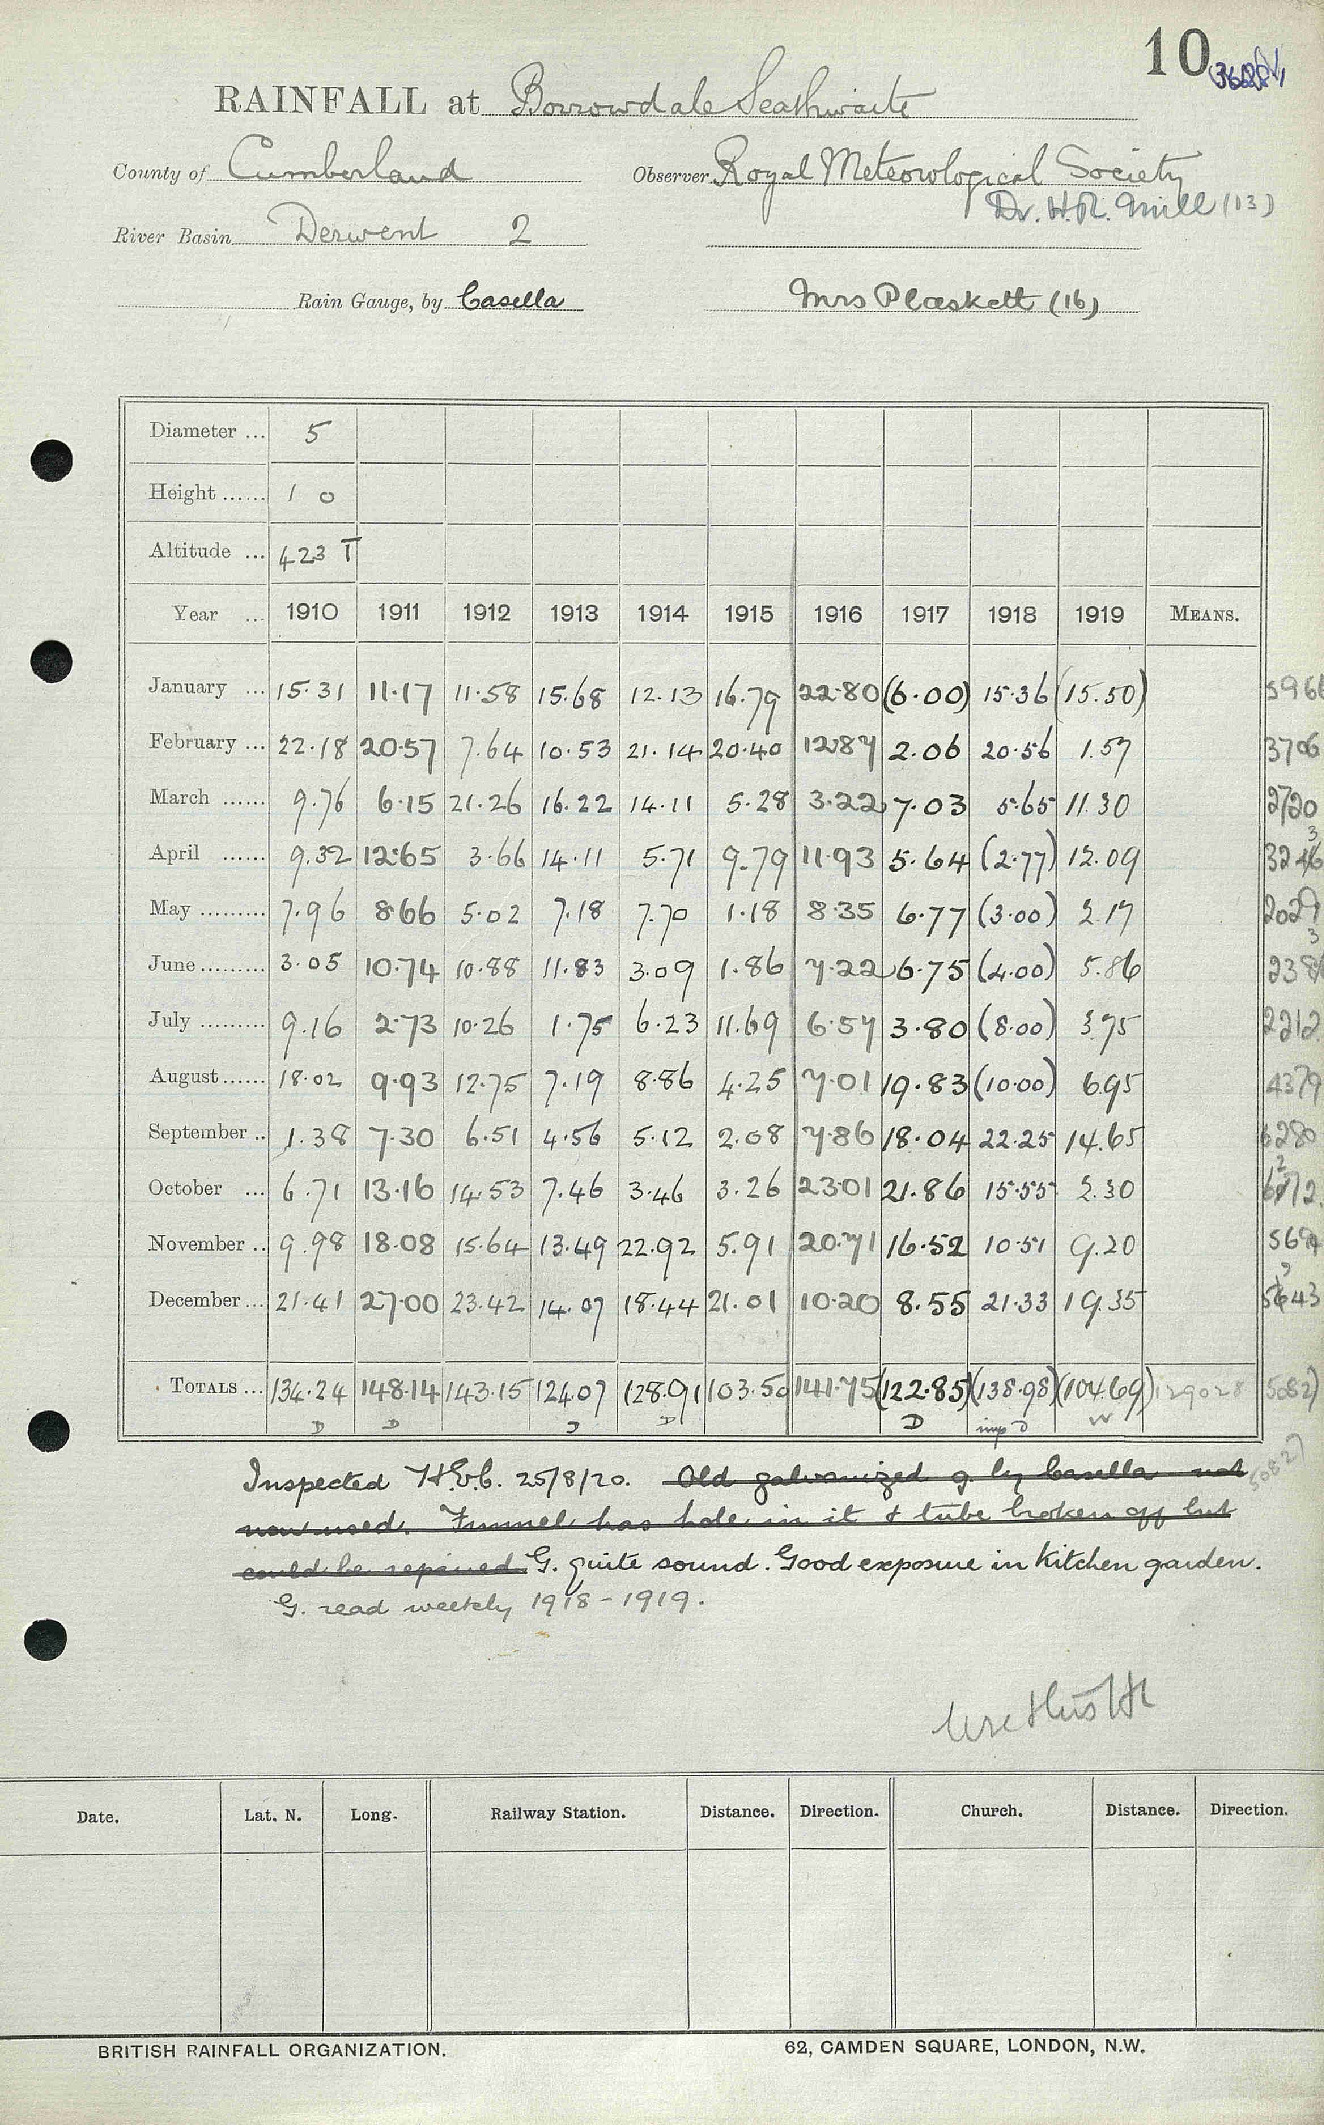 10
RAINFALL at Borrowdale Seathwaite
County of Cumberland Observer Royal Meteorological Society
Dr. H.R. Mill (13)
River Basin Derwent 2
Rain Gauge, by Casella Mrs Plaskett (16)
Diameter ... 5
Height ...... 1 0
Altitude ... 423 T
Year ... 1910 1911 1912 1913 1914 1915 1916 1917 1918 1919 MEANS.
January ... 15.31 11.17 11.58 15.68 12.13 16.79 22.80 (6.00) 15.36 (15.50)
February ... 22.18 20.57 7.64 10.53 21.14 20.40 12.87 2.06 20.56 1.57 3706
March ...... 9.76 6.15 21.26 16.22 14.11 5.28 3.22 7.03 5.65 11.30 2720
April ...... 9.32 12.65 3.66 14.11 5.71 9.79 11.93 5.64 (2.77) 12.09
May ......... 7.96 8.66 5.02 7.18 7.70 1.18 8.35 6.77 (3.00) 2.17
June ......... 3.05 10.74 10.88 11.83 3.09 1.86 7.22 6.75 (4.00) 5.86
July ......... 9.16 2.73 10.26 1.75 6.23 11.69 6.57 3.80 (8.00) 3.75 2212
August ...... 18.02 9.93 12.75 7.19 8.86 4.25 7.01 19.83 (10.00) 6.95 4379
September .. 1.38 7.30 6.51 4.56 5.12 2.08 7.86 18.04 22.25 14.65 6280
October ... 6.71 13.16 14.53 7.46 3.46 3.26 23.01 21.86 15.55 2.30
November .. 9.98 18.08 15.64 13.49 22.92 5.91 20.71 16.52 10.51 9.20
December ... 21.41 27.00 23.42 14.07 18.44 21.01 10.20 8.55 21.33 19.35
TOTALS ... 134.24 148.14 143.15 124.07 128.91 103.50 141.75 (122.85) (138.98) (104.69) 129028 50827
D D D D D imp D W
Inspected H.E.C. 25/8/20. Old galvanized g. by Casella not 50827
now used. Funnel has hole in it & tube broken off but
could be repaired G. quite sound. Good exposure in Kitchen garden.
G. read weekly 1918-1919.
Date. Lat. N. Long. Railway Station. Distance. Direction. Church. Distance. Direction.
BRITISH RAINFALL ORGANIZATION. 62, CAMDEN SQUARE, LONDON, N.W.